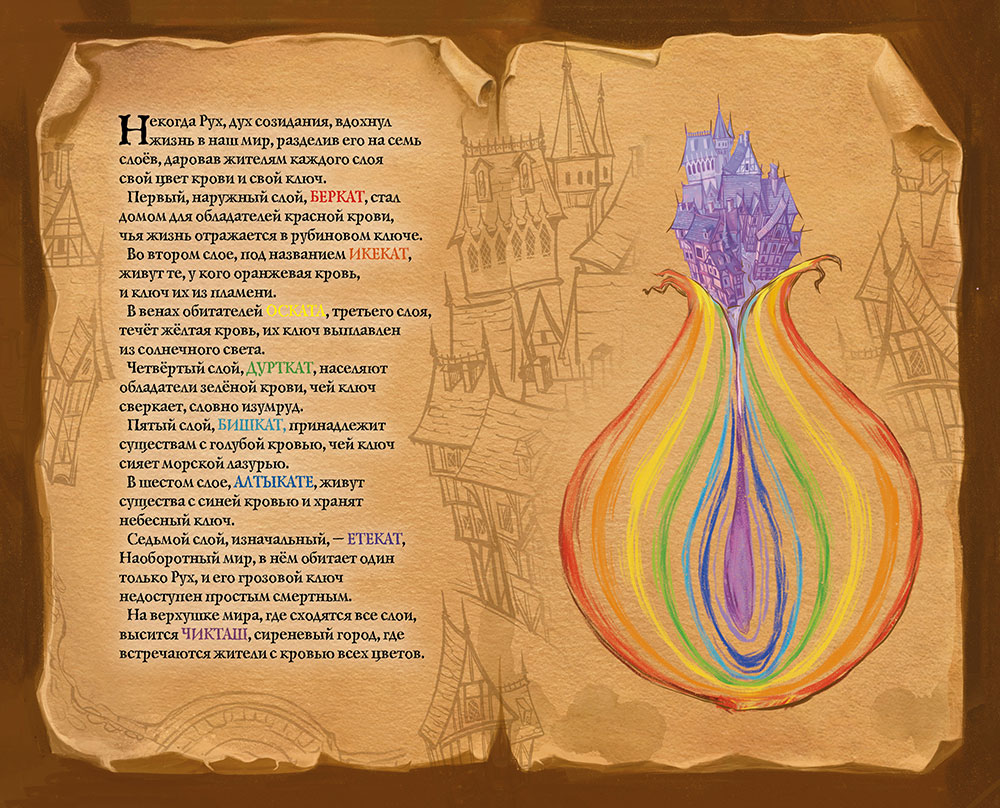 Некогда Рух, дух созидания, вдохнул
жизнь в наш мир, разделив его на семь
слоёв, даровав жителям каждого слоя
свой цвет крови и свой ключ.
Первый, наружный слой, БЕРКАТ, стал
домом для обладателей красной крови,
чья жизнь отражается в рубиновом ключе.
Во втором слое, под названием ИКЕКАТ,
живут те, у кого оранжевая кровь,
и ключ их из пламени.
В венах обитателей ОСКАТА, третьего слоя,
течёт жёлтая кровь, их ключ выплавлен
из солнечного света.
Четвёртый слой, ДУРТКАТ, населяют
обладатели зелёной крови, чей ключ
сверкает, словно изумруд.
Пятый слой, БИШКАТ, принадлежит
существам с голубой кровью, чей ключ
сияет морской лазурью.
В шестом слое, АЛТЫКАТЕ, живут
существа с синей кровью и хранят
небесный ключ.
Седьмой слой, изначальный, — ЕТЕКАТ,
Наоборотный мир, в нём обитает один
только Рух, и его грозовой ключ
недоступен простым смертным.
На верхушке мира, где сходятся все слои,
высится ЧИКТАШ, сиреневый город, где
встречаются жители с кровью всех цветов.